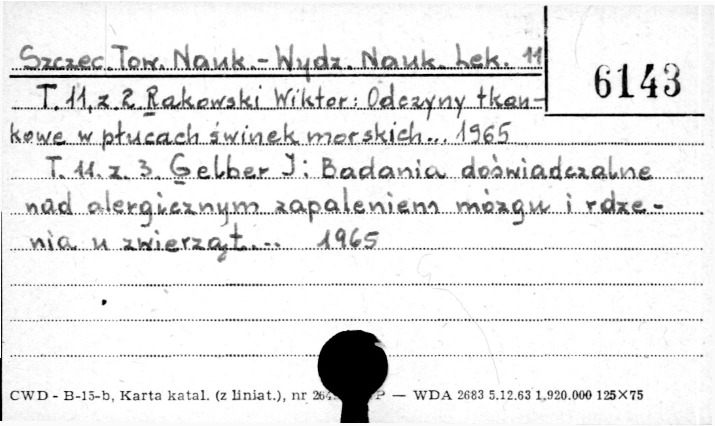 Szczec. Tow. Nauk.-Wydz. Nauk. Lek. 11
6143
T. 11, z. 2. Rakowski Wiktor: Odczyny tkan-
kowe w płucach świnek morskich... 1965
T. 11. z. 3. Gelber J: Badania doświadczalne
nad alergicznym zapaleniem mózgu i rdze-
nia u zwierząt... 1965
CWD - B-15-b, Karta katal. (z liniat.), nr — WDA 2683 5.12.63 1.920.000 125×75